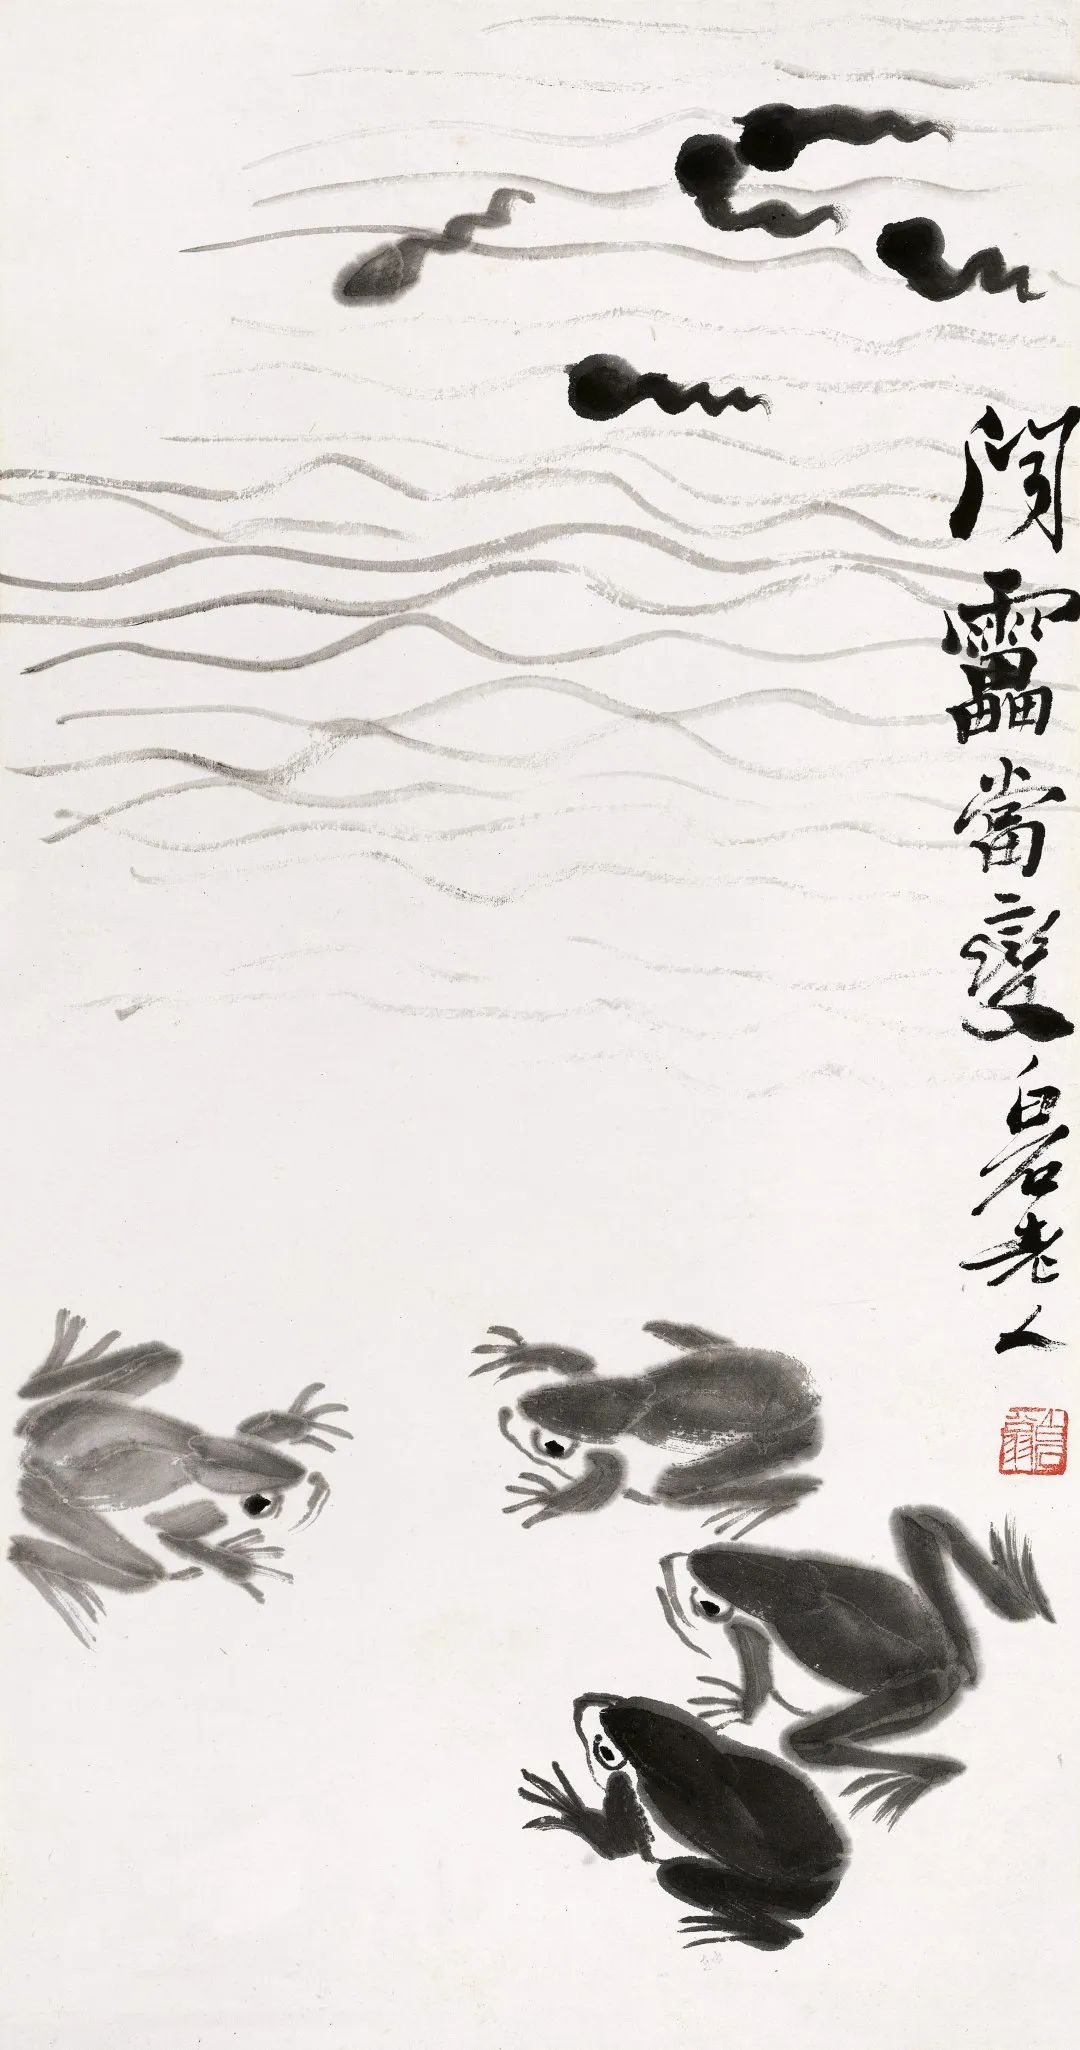 聞靁當變白石老人